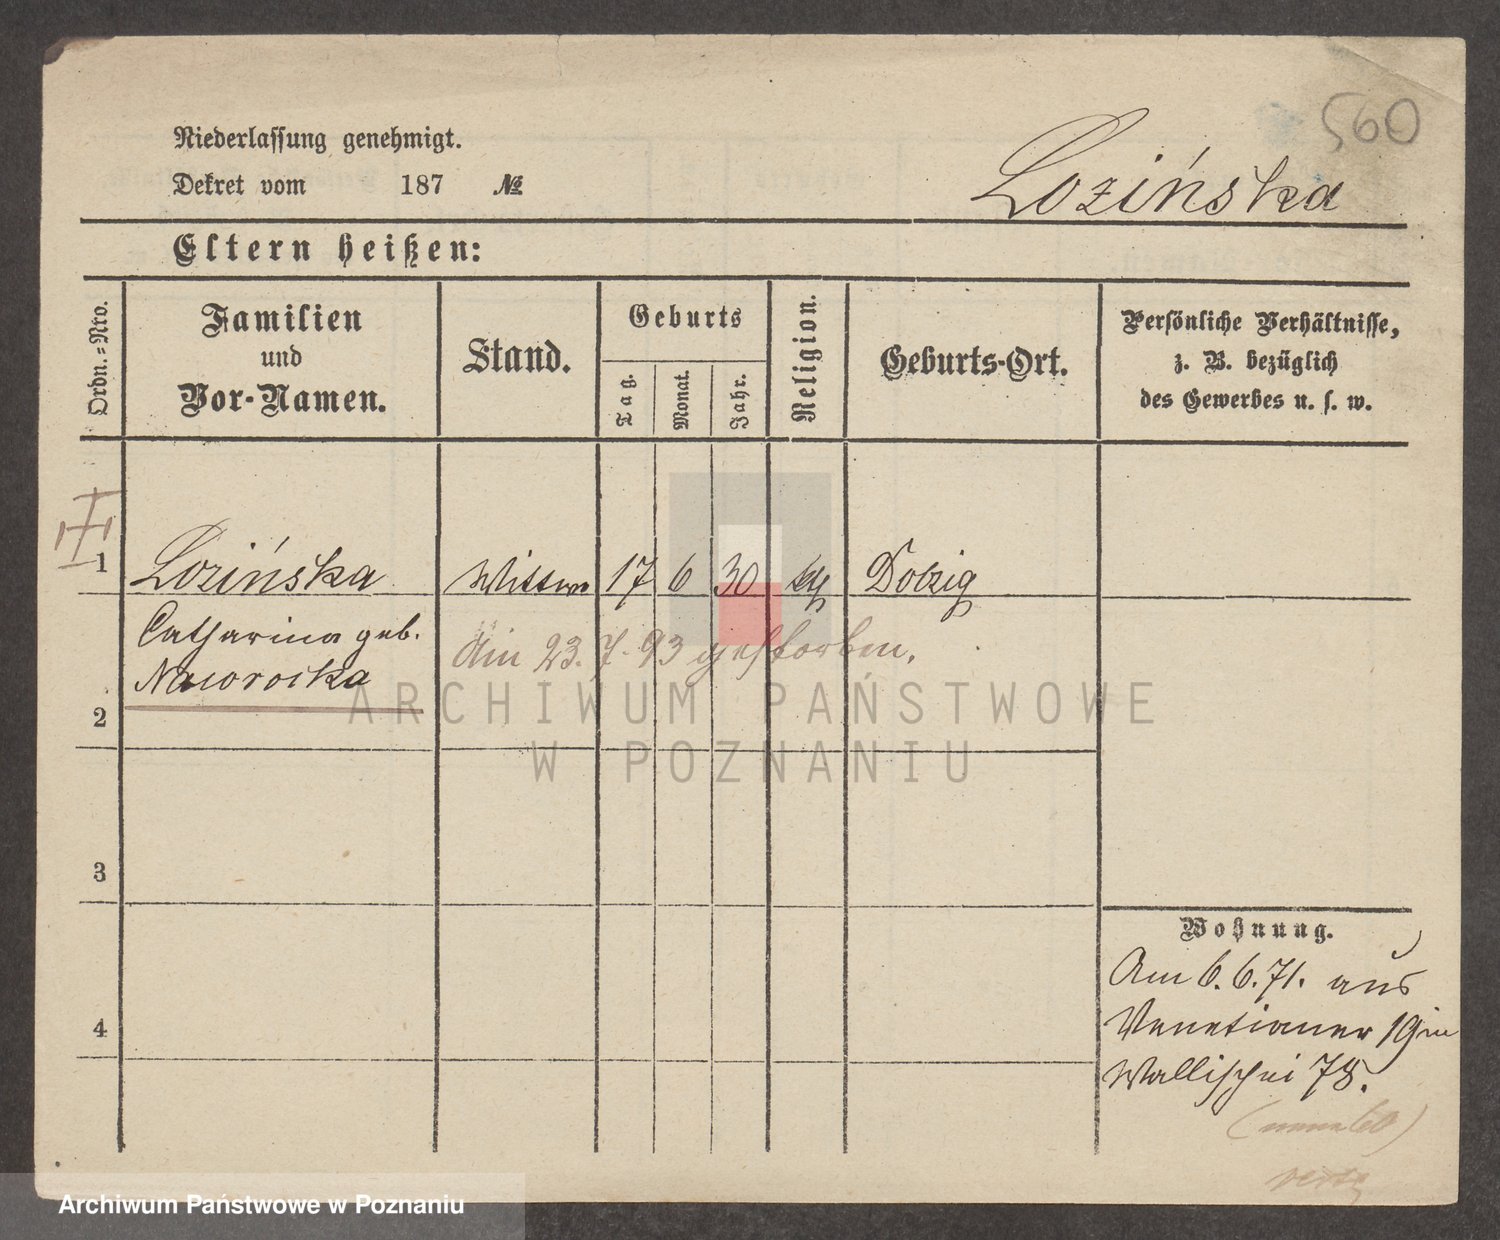 560
Niederlassung genehmigt.
Dekret vom 187 №
Lozińska
Eltern heißen:
Ordn.=Nro.
Familien und Vor-Namen.
Stand.
Geburts
Tag.
Monat.
Jahr.
Religion.
Geburts-Ort.
Persönliche Verhältnisse,
z. B. bezüglich
des Gewerbes u. s. w.
1 Lozińska Wittwe 17 6 30 kth Dolzig
Catharina geb. den 23. 7. 93 gestorben.
Nawrocka
2
3
4
Wohnung.
Am 6. 6. 71. aus
Venetianer 19 in
Wallischei 78.
ARCHIWUM PAŃSTWOWE
W POZNANIU
Archiwum Państwowe w Poznaniu